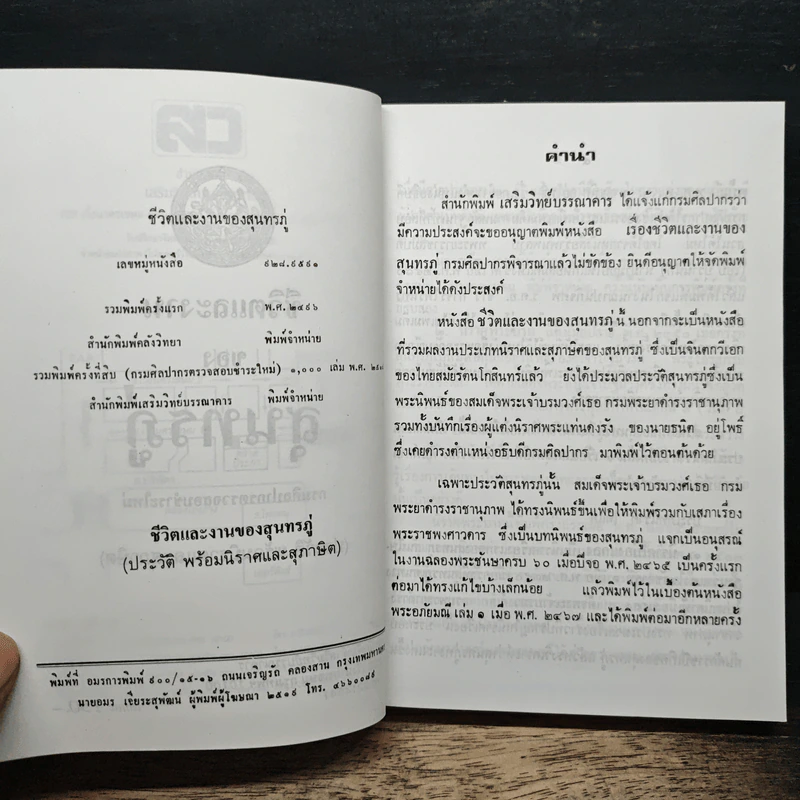 ชีวิตและงานของสุนทรภู่
เลขหมู่หนังสือ ๙๒๘.๙๕๙๑
รวมพิมพ์ครั้งแรก พ.ศ. ๒๔๙๖
สำนักพิมพ์คลังวิทยา พิมพ์จำหน่าย
รวมพิมพ์ครั้งที่สิบ (กรมศิลปากรตรวจสอบชำระใหม่) ๑,๐๐๐ เล่ม พ.ศ.
สำนักพิมพ์เสริมวิทย์บรรณาคาร พิมพ์จำหน่าย
ชีวิตและงานของสุนทรภู่
(ประวัติ พร้อมนิราศและสุภาษิต)
พิมพ์ที่ อมรการพิมพ์ ๙๐๐/๑๕-๑๖ ถนนเจริญรัถ คลองสาน
นายอมร เจียระสุพัฒน์ ผู้พิมพ์ผู้โฆษณา ๒๕๑๙ โทร. ๔๖๖๐๐๘๙
คำนำ
สำนักพิมพ์ เสริมวิทย์บรรณาคาร ได้แจ้งแก่กรมศิลปากรว่า
มีความประสงค์จะขออนุญาตพิมพ์หนังสือ เรื่องชีวิตและงานของ
สุนทรภู่ กรมศิลปากรพิจารณาแล้วไม่ขัดข้อง ยินดีอนุญาตให้จัดพิมพ์
จำหน่ายได้ดังประสงค์
หนังสือ ชีวิตและงานของสุนทรภู่ นี้ นอกจากจะเป็นหนังสือ
ที่รวมผลงานประเภทนิราศและสุภาษิตของสุนทรภู่ ซึ่งเป็นจินตกวีเอก
ของไทยสมัยรัตนโกสินทร์แล้ว ยังได้ประมวลประวัติสุนทรภู่ซึ่งเป็น
พระนิพนธ์ของสมเด็จพระเจ้าบรมวงศ์เธอ กรมพระยาดำรงราชานุภาพ
รวมทั้งบันทึกเรื่องผู้แต่งนิราศพระแท่นดงรัง ของนายธนิต อยู่โพธิ์
ซึ่งเคยดำรงตำแหน่งอธิบดีกรมศิลปากร มาพิมพ์ไว้ตอนต้นด้วย
เฉพาะประวัติสุนทรภู่นั้น สมเด็จพระเจ้าบรมวงศ์เธอ กรม
พระยาดำรงราชานุภาพ ได้ทรงนิพนธ์ขึ้นเพื่อให้พิมพ์รวมกับเสภาเรื่อง
พระราชพงศาวดาร ซึ่งเป็นบทนิพนธ์ของสุนทรภู่ แจกเป็นอนุสรณ์
ในงานฉลองพระชันษาครบ ๖๐ เมื่อปีจอ พ.ศ. ๒๔๖๕ เป็นครั้งแรก
ต่อมาได้ทรงแก้ไขบ้างเล็กน้อย แล้วพิมพ์ไว้ในเบื้องต้นหนังสือ
พระอภัยมณี เล่ม ๑ เมื่อ พ.ศ. ๒๔๖๗ และได้พิมพ์ต่อมาอีกหลายครั้ง